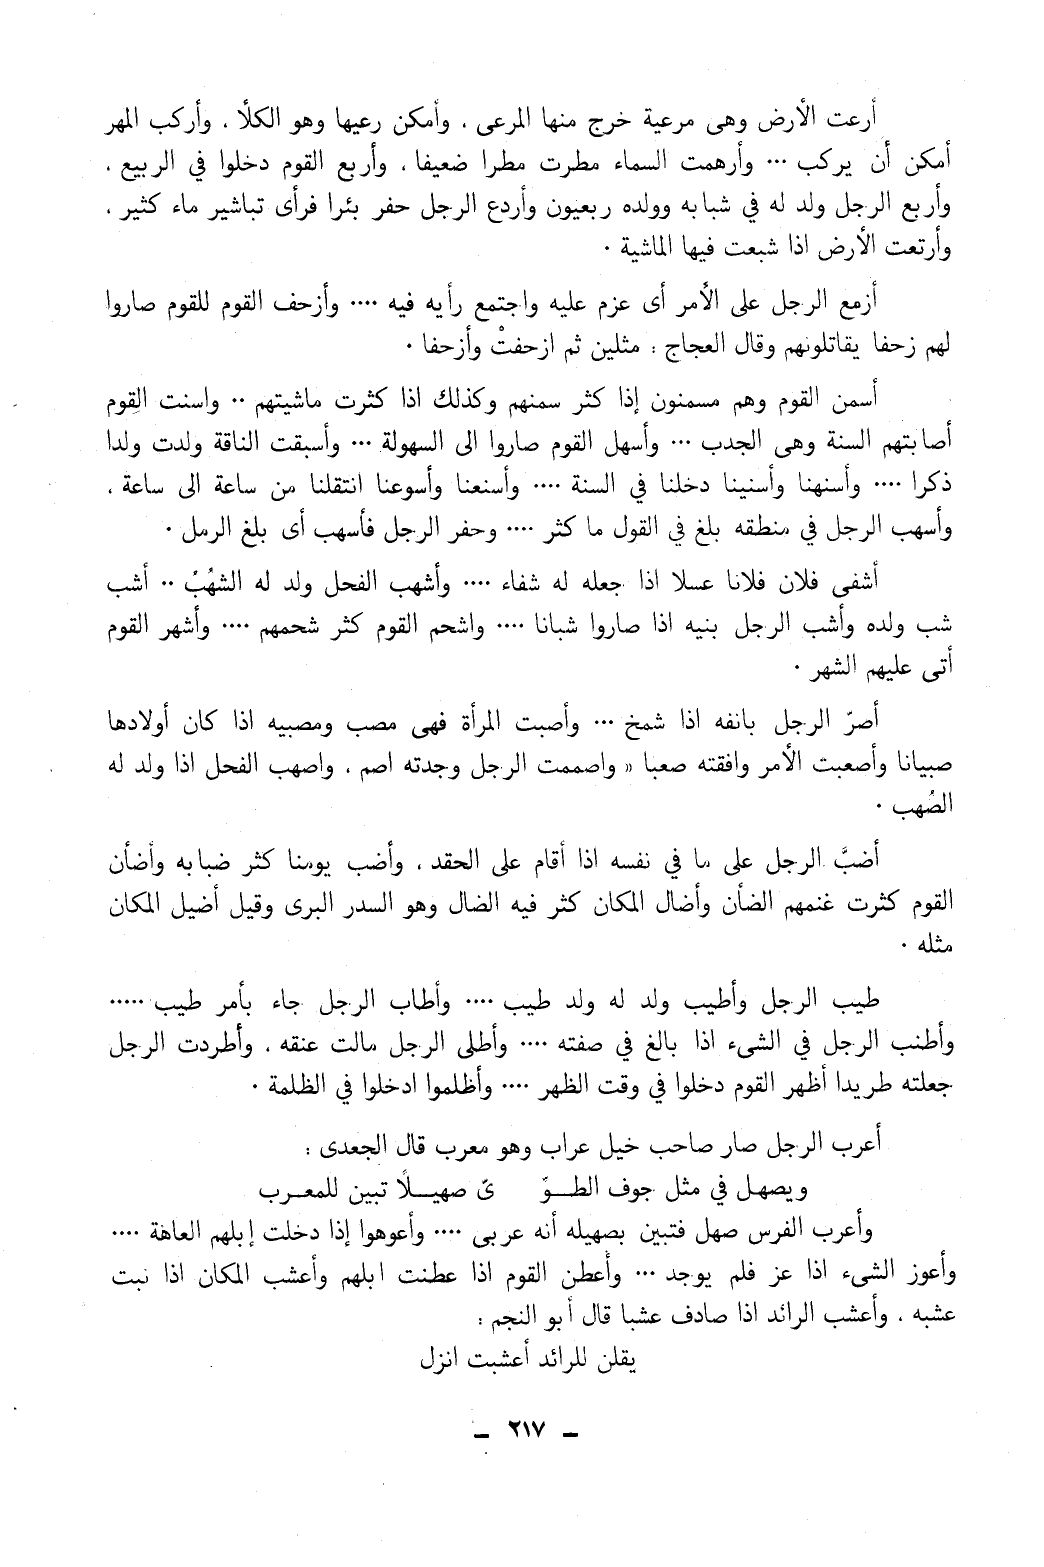 أرعت الأرض وهى مرعية خرج منها المرعى ، وأمكن رعيها وهو الكلأ ، وأركب المهر
أمكن أن يركب ... وأرهمت السماء مطرت مطرا ضعيفا ، وأربع القوم دخلوا في الربيع ،
وأربع الرجل ولد له في شبابه وولده ربعيون وأردع الرجل حفر بئرا فرأى تباشير ماء كثير ،
وأرتعت الأرض اذا شبعت فيها الماشية .
أزمع الرجل على الأمر أى عزم عليه واجتمع رأيه فيه .... وأزحف القوم للقوم صاروا
لهم زحفا يقاتلونهم وقال العجاج : مثلين ثم ازحفتْ وأزحفا .
أسمن القوم وهم مسمنون إذا كثر سمنهم وكذلك اذا كثرت ماشيتهم .. واسنت القوم
أصابتهم السنة وهى الجدب ... وأسهل القوم صاروا الى السهولة ... وأسبقت الناقة ولدت ولدا
ذكرا .... وأسنهنا وأسنينا دخلنا في السنة .... وأسنعنا وأسوعنا انتقلنا من ساعة الى ساعة ،
وأسهب الرجل في منطقه بلغ في القول ما كثر .... وحفر الرجل فأسهب أى بلغ الرمل .
أشفى فلان فلانا عسلا اذا جعله له شفاء .... وأشهب الفحل ولد له الشهُبْ .. أشب
شب ولده وأشب الرجل بنيه اذا صاروا شبانا .... واشحم القوم كثر شحمهم .... وأشهر القوم
أتى عليهم الشهر .
أصرّ الرجل بانفه اذا شمخ ... وأصبت المرأة فهى مصب ومصبيه اذا كان أولادها
صبيانا وأصعبت الأمر وافقته صعبا « واصممت الرجل وجدته اصم ، واصهب الفحل اذا ولد له
الصُهب .
أضبَّ الرجل على ما في نفسه اذا أقام على الحقد ، وأضب يومنا كثر ضبابه وأضأن
القوم كثرت غنمهم الضأن وأضال المكان كثر فيه الضال وهو السدر البرى وقيل أضيل المكان
مثله .
طيب الرجل وأطيب ولد له ولد طيب .... وأطاب الرجل جاء بأمر طيب .....
وأطنب الرجل في الشىء اذا بالغ في صفته .... وأطلى الرجل مالت عنقه ، وأطردت الرجل
جعلته طريدا أظهر القوم دخلوا في وقت الظهر .... وأظلموا ادخلوا في الظلمة .
أعرب الرجل صار صاحب خيل عراب وهو معرب قال الجعدى :
ويصهل في مثل جوف الطــوّ ىّ صهيــلًا تبين للمعـرب
وأعرب الفرس صهل فتبين بصهيله أنه عربى .... وأعوهوا إذا دخلت إبلهم العاهة ....
وأعوز الشىء اذا عز فلم يوجد ... وأعطن القوم اذا عطنت ابلهم وأعشب المكان اذا نبت
عشبه ، وأعشب الرائد اذا صادف عشبا قال أبو النجم :
يقلن للرائد أعشبت انزل
ـ ٢١٧ ـ